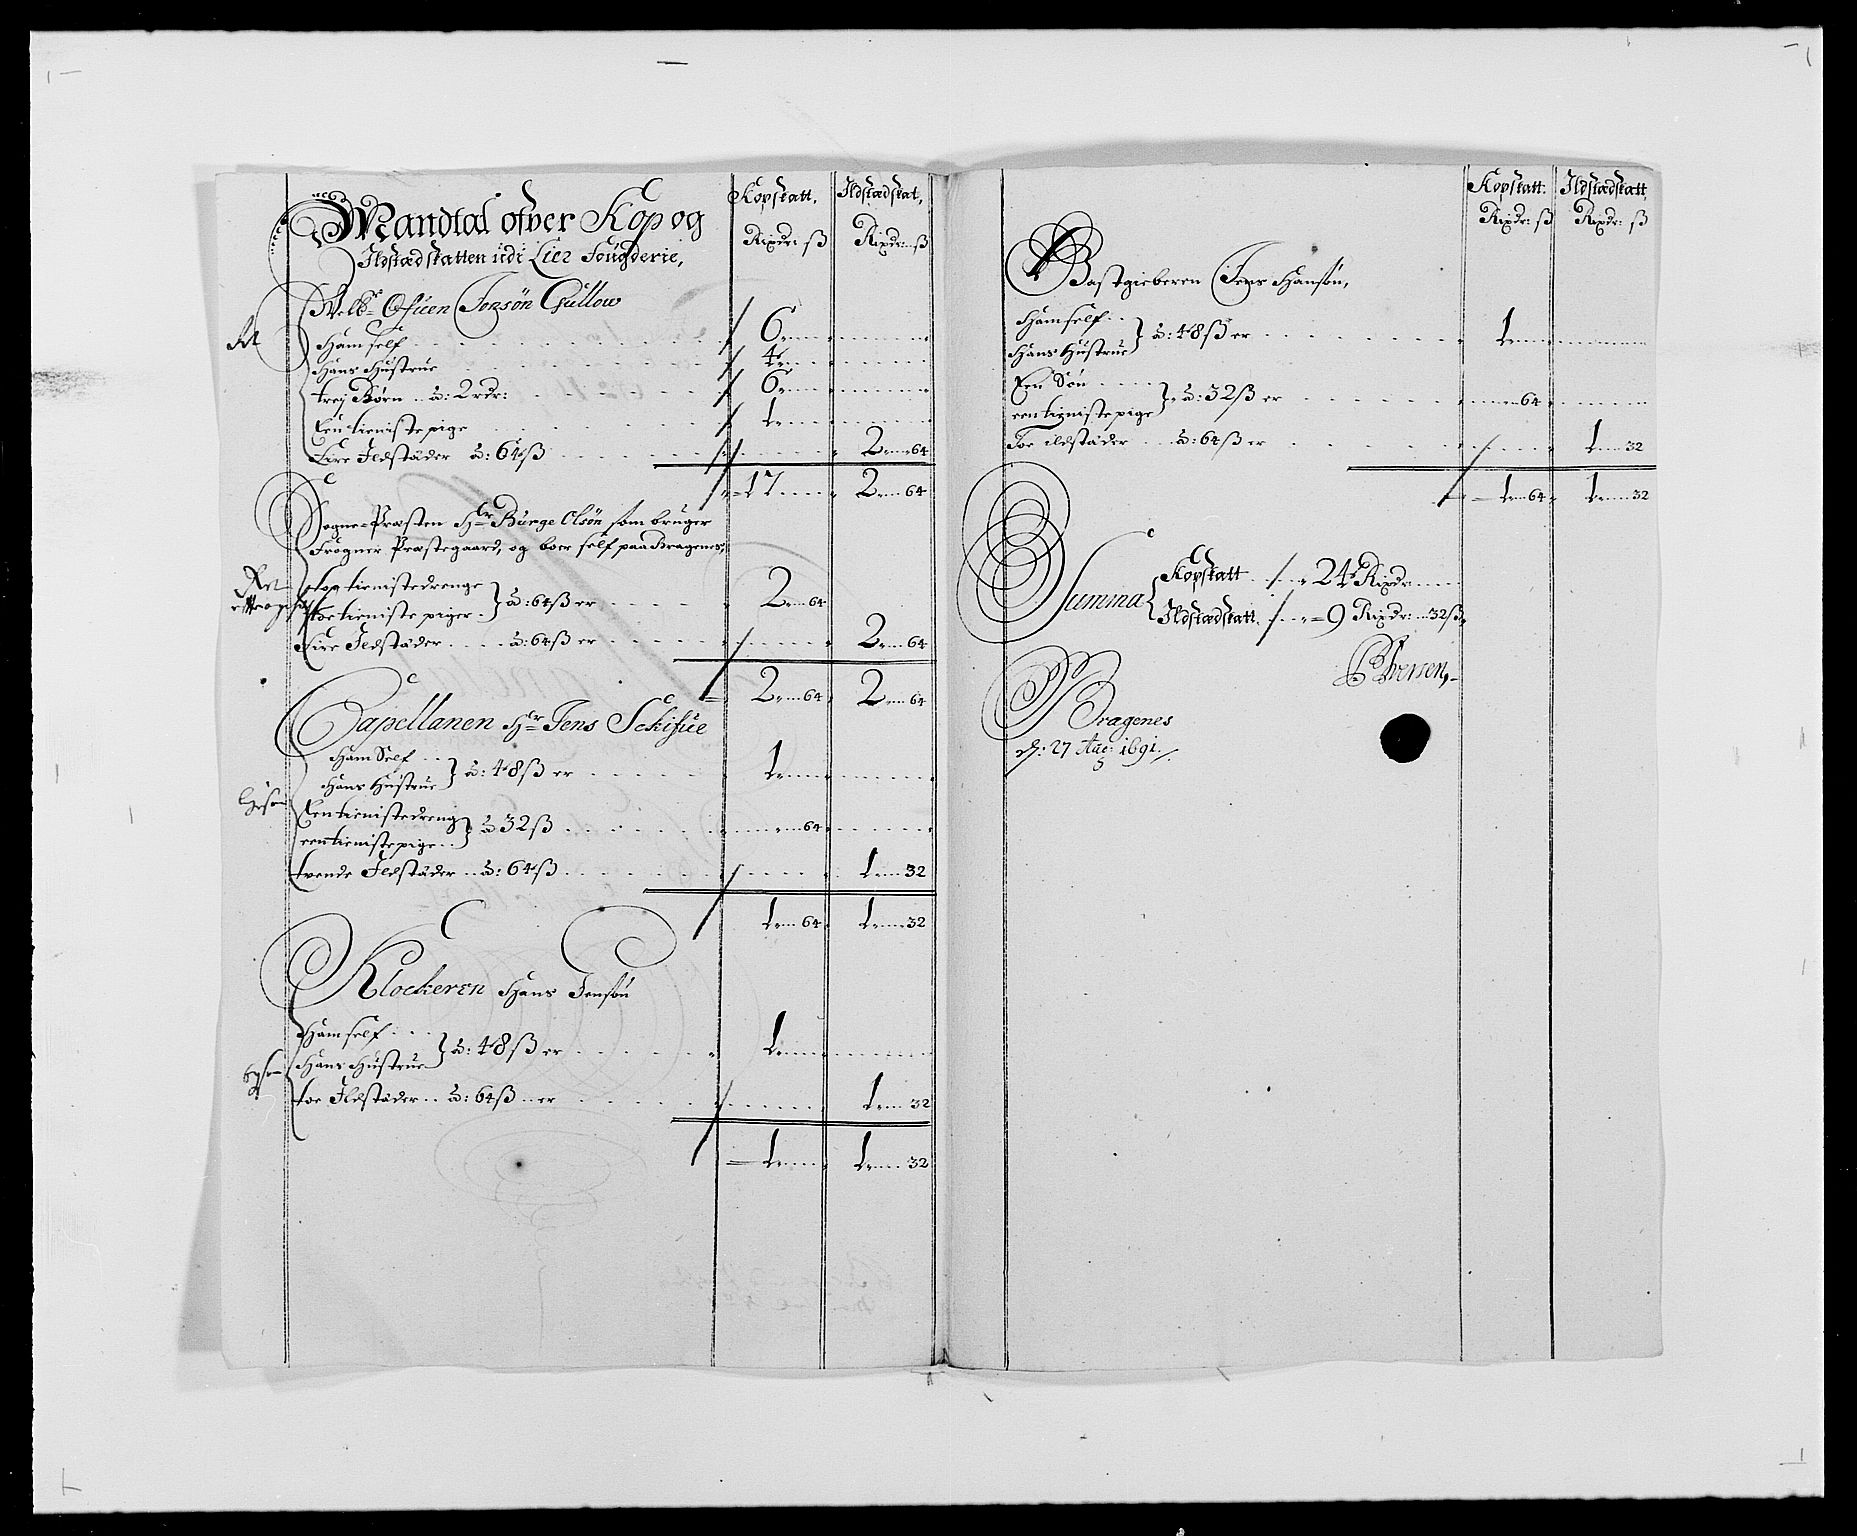 Mandtal ofver Kop og
Ildstædskatten udi Lier Fougderie,
Kopskatt, Ildstædskat,
Rixdr: ß Rixdr: ß
Welb: Ofuen Jensøn Gullow
Ham self 6
Hans Hustrue 4
trej Børn â: 2 rdr: 6
Een tieniste pige 1
Fire Ildstæder â: 64 ß 2 64
17 2 64
Sogne-Præsten Hr Børge Olsøn som bruger
Frogner Præstegaard, og boer self paa Bragenes,
toe tienistedrenge
toe tieniste piger } â: 64 ß er 2 64
Fire Ildstæder â: 64 ß er 2 64
2 64 2 64
Capellanen Hr Jens
Ham Self
Hans Hustrue } â: 48 ß er 1
Een tienistedreng
een tienistepige } â 32 ß 64
tvende Ildstæder â: 64 ß 1 32
1 64 1 32
Klockeren Hans Jensøn
Ham self
Hans Hustrue } â: 48 ß er 1
toe Ildstæder â: 64 ß er 1 32
1 1 32
Kopskatt: Ildstædskatt
Rixdr: ß Rixdr: ß
Gastgieberen Jens Hansøn,
Ham self
Hans Hustrue } â: 48 ß er 1
Een Søn
een tienistepige } â: 32 ß er 64
Toe ildstæder â: 64 ß er 1 32
1 64 1 32
Summa { Kopskatt 24 Rixdr:
Ildstædskatt 9 Rixdr: 32 ß
Iversen,
Bragenes
d: 27 Aug: 1691